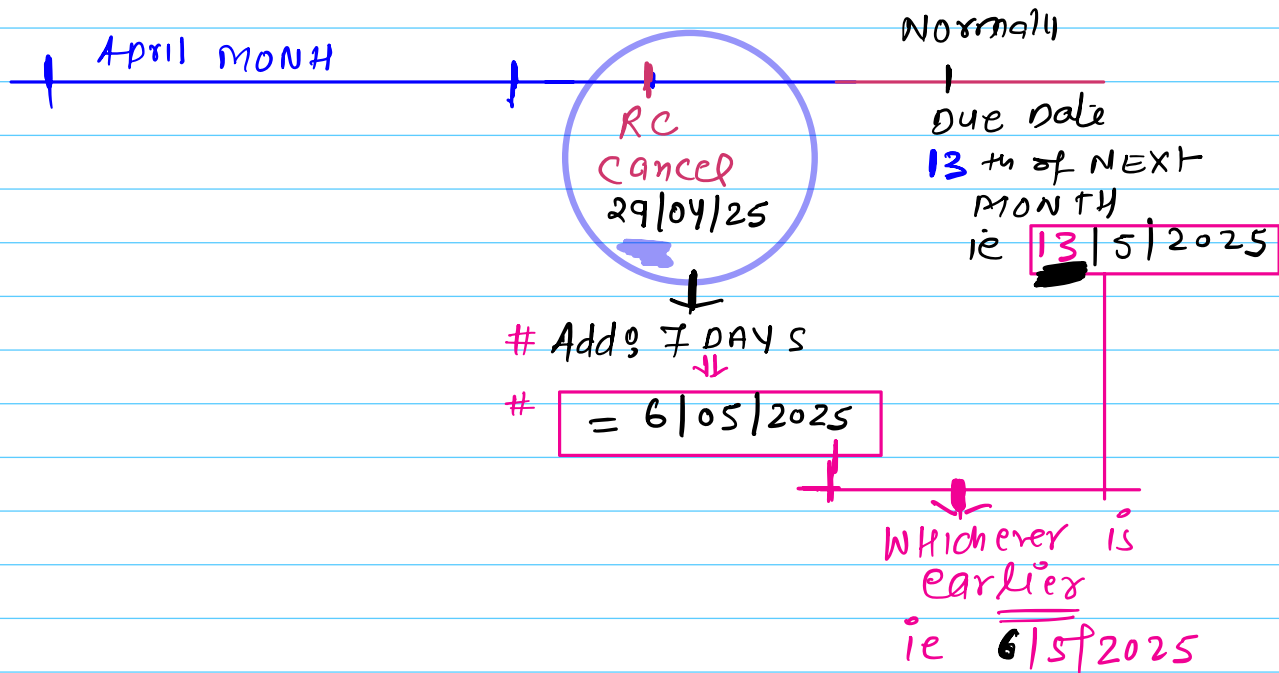 April MONH
Normally
RC
Cancel
29/04/25
Due Date
13th of NEXT
MONTH
ie 13/5/2025
# Add: 7 DAYS
# = 6/05/2025
WHichever is
earlier
ie 6/5/2025